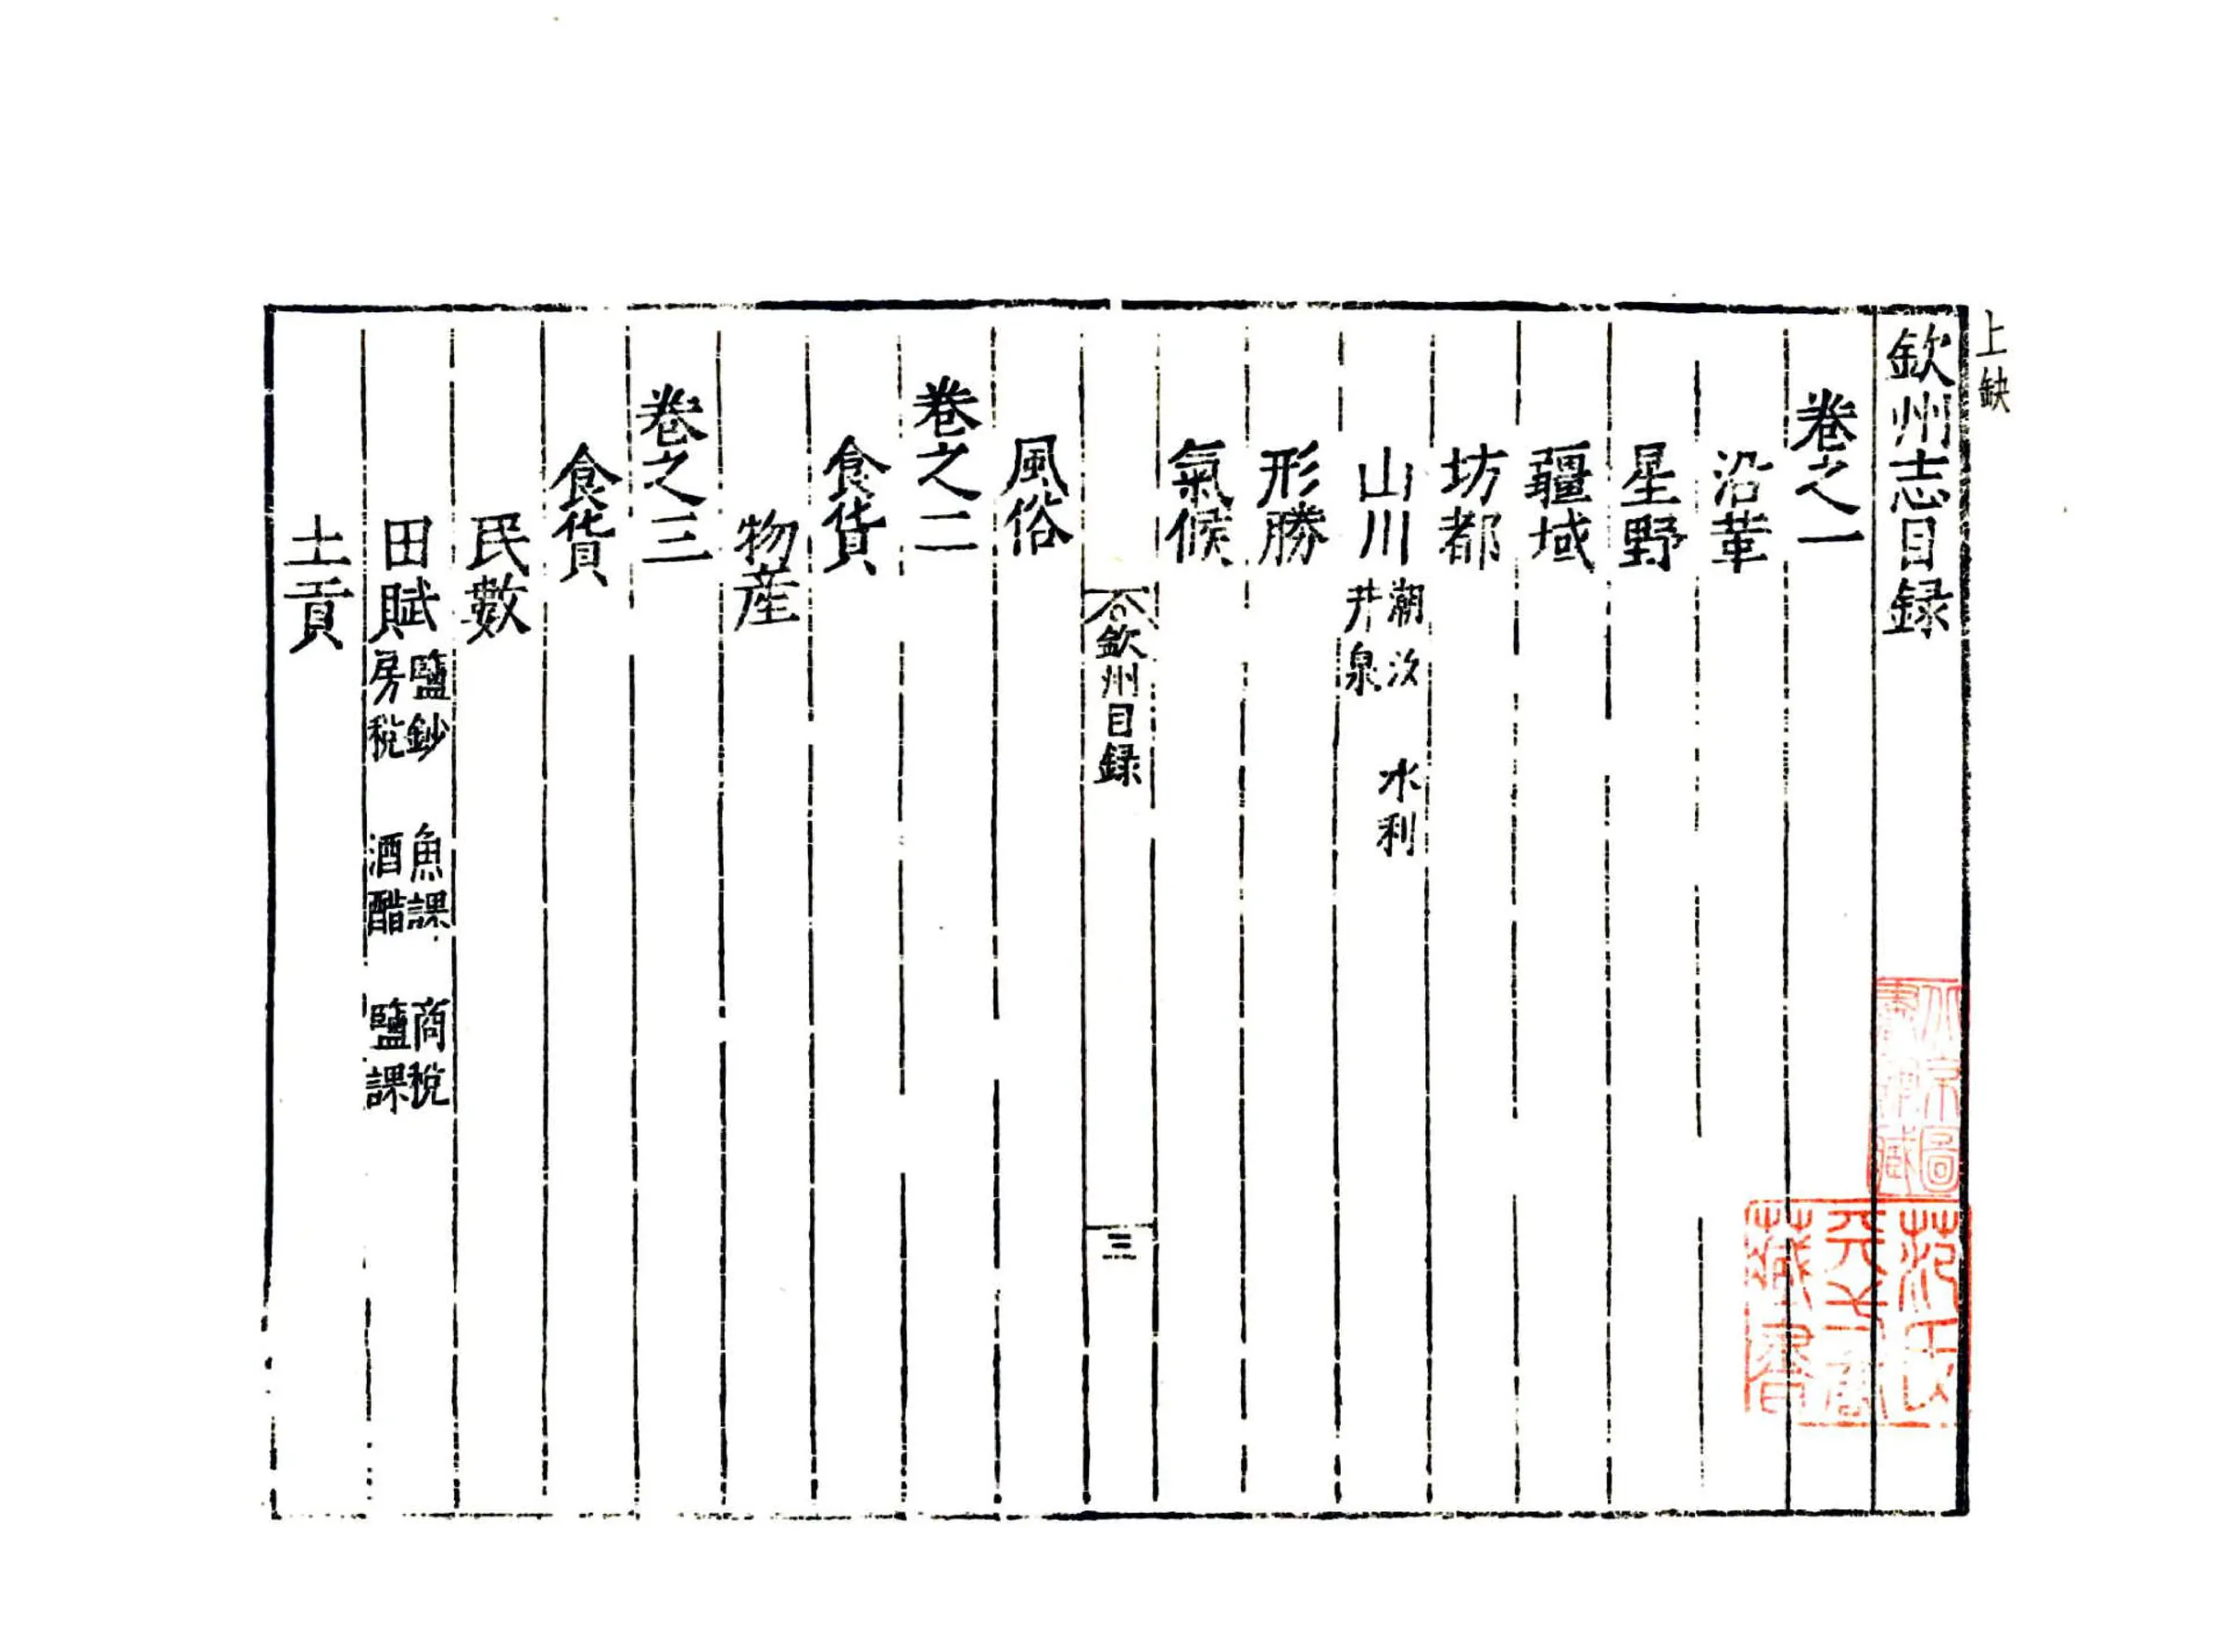 上缺
欽州志目録
卷之一
沿革
星野
疆域
坊都
山川 潮汐 水利 井泉
形勝
氣候
欽州目録
三
風俗
卷之二
食貨
物産
卷之三
食貨
民數
田賦 鹽鈔 魚課 商稅 房稅 酒醋 鹽課
土貢
北京圖
書館藏
范氏
天一閣
藏書